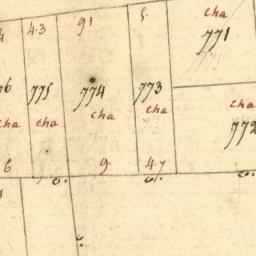 43 91 5. cha
771
775 774 773
cha cha cha cha
cha
772
6 9 47